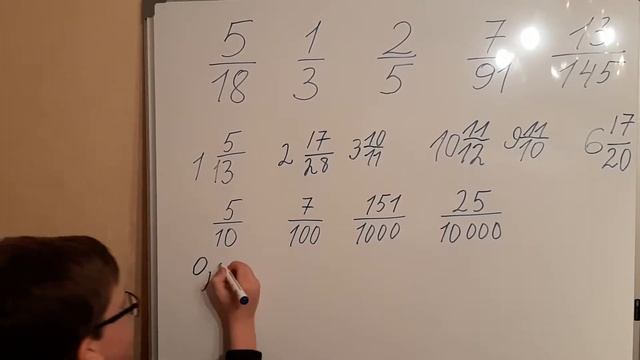 5/18 1/3 2/5 7/91 13/145
1 5/13 2 17/28 3 10/11 10 11/12 9 11/10 6 17/20
5/10 7/100 151/1000 25/10000
0,